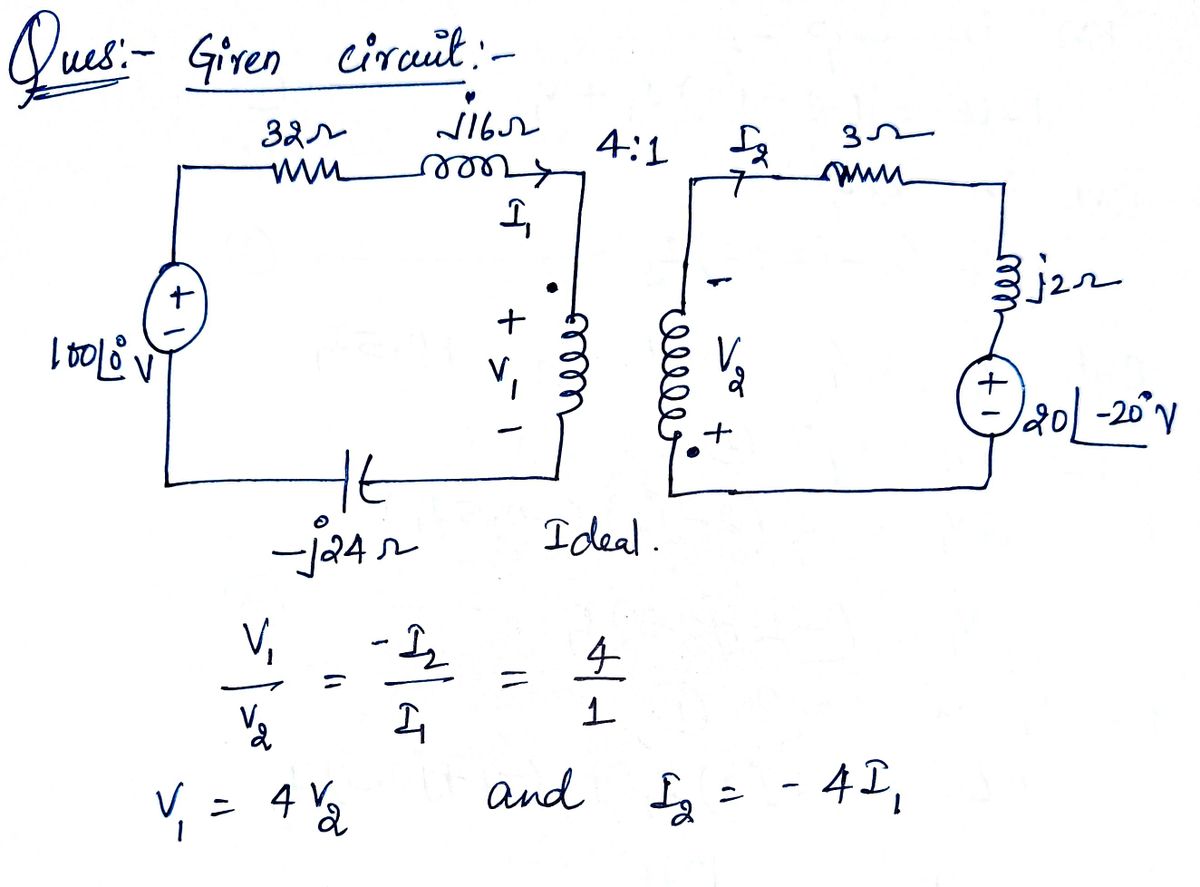 Ques:- Given circuit:-
32Ω j16Ω 4:1 I₂ 3Ω
I₁
+ - j2Ω
100∠0° V + - V₁ - V₂ + + - 20∠-20° V
-j24Ω Ideal.
V₁/V₂ = -I₂/I₁ = 4/1
V₁ = 4V₂ and I₂ = -4I₁